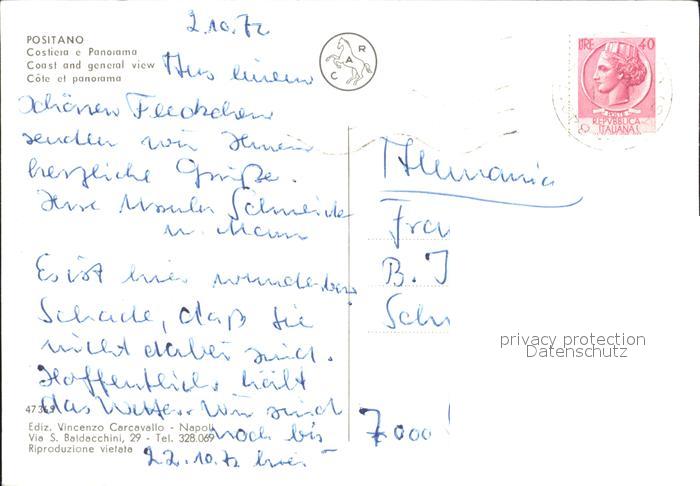 2.10.72
POSITANO
Costiera e Panorama
Coast and general view
Côte et panorama
C A R
LIRE 40
POSTE
REPVBBLICA
ITALIANA
Aus einem
schönen Fleckchen
senden wir Ihnen
herzliche Grüße.
Ihre Ursula Schneider
u. Mann
Es ist hier wunderbar
Schade, daß Sie
nicht dabei sind.
Hoffentlich hält
das Wetter. Wir sind
noch bis
22.10.72 hier.
Alemania
Frau
B. J
Schu
7000
privacy protection
Datenschutz
Ediz. Vincenzo Carcavallo - Napoli
Via S. Baldacchini, 29 - Tel. 328.069
Riproduzione vietata